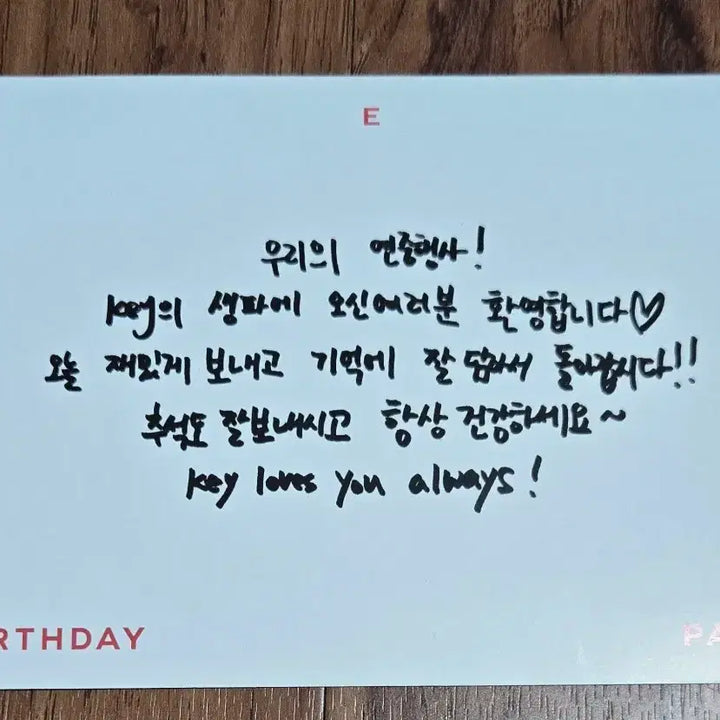 E
우리의 연중행사!
key의 생파에 오신여러분 환영합니다♡
오늘 재밌게 보내고 기억에 잘 담아서 돌아갑시다!!
추석도 잘보내시고 항상 건강하세요~
key loves you always!
RTHDAY
PA